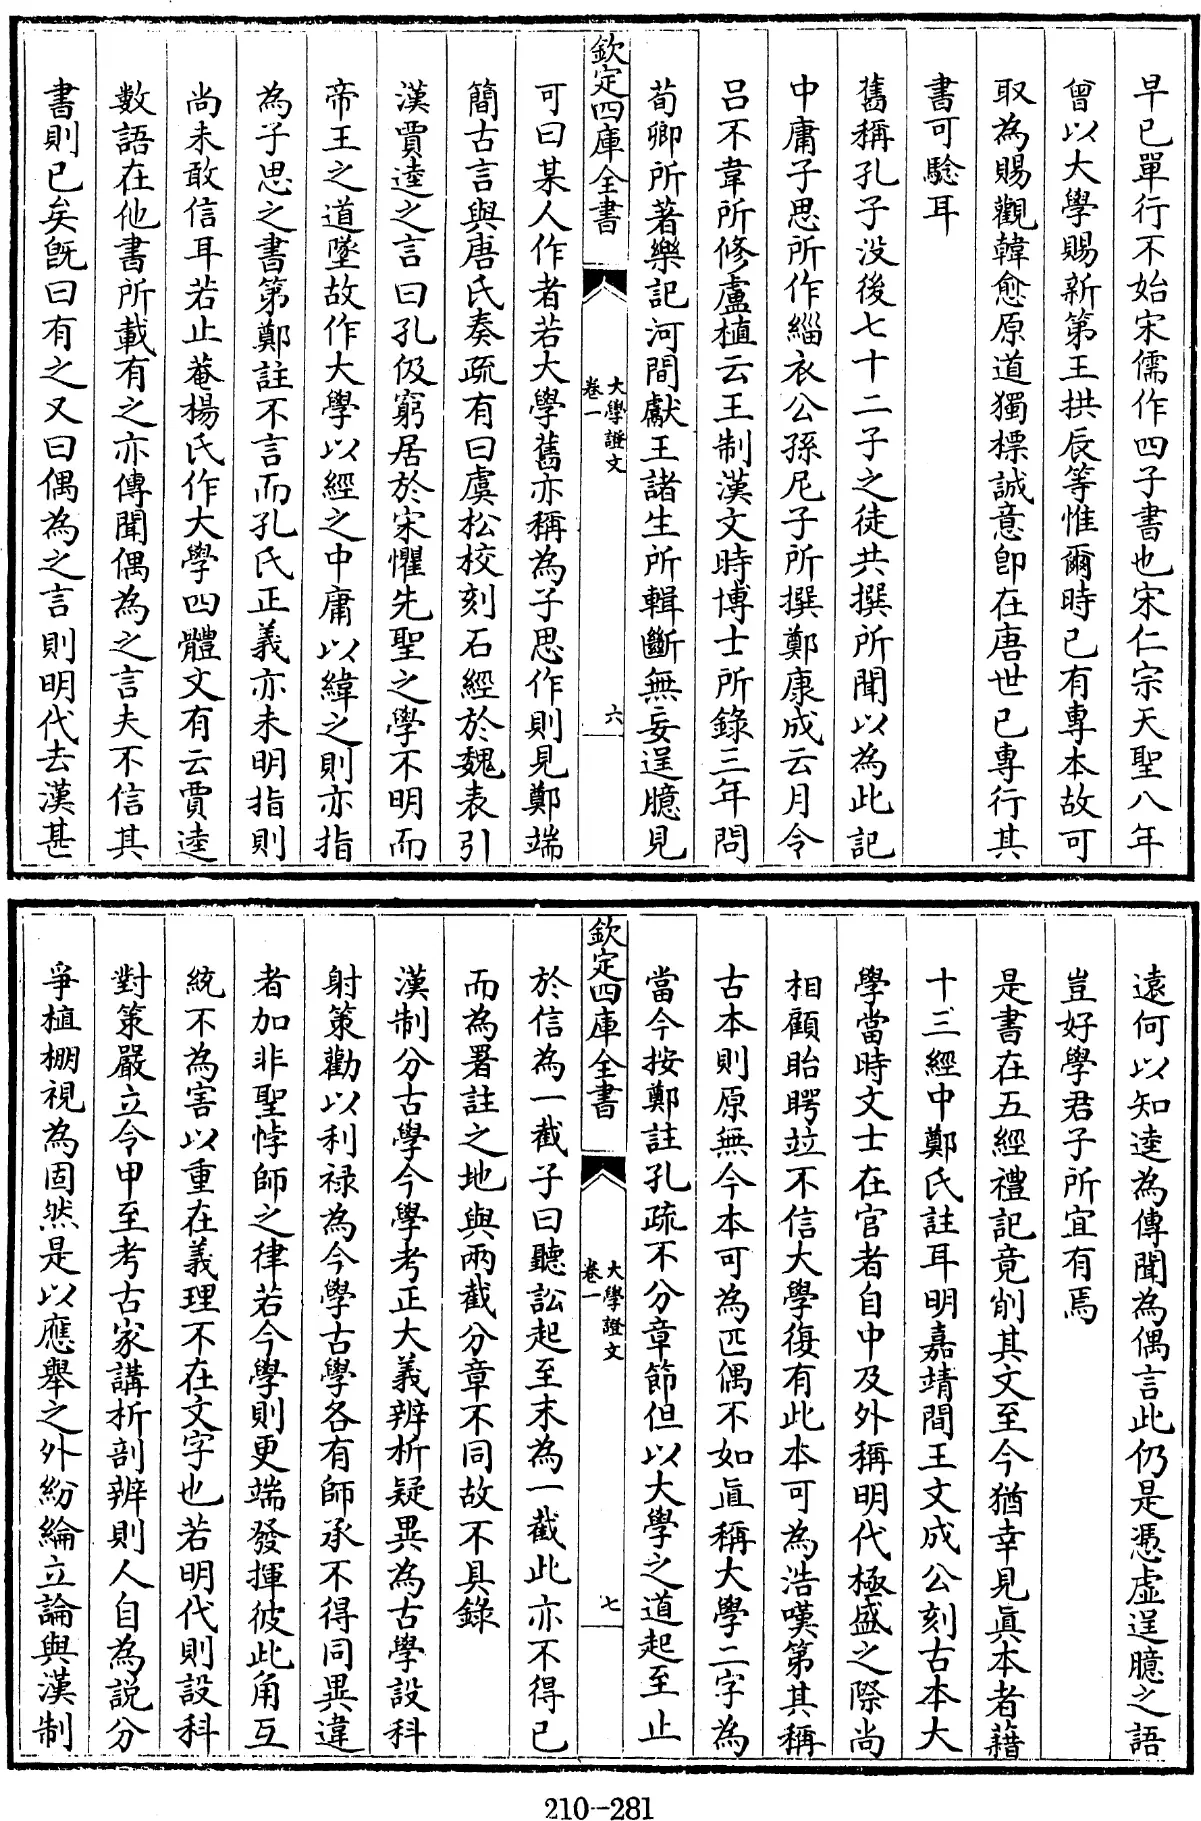 早已單行不始宋儒作四子書也宋仁宗天聖八年
曾以大學賜新第王拱辰等惟爾時已有專本故可
取為賜觀韓愈原道獨標誠意卽在唐世已專行其
書可驗耳
舊稱孔子没後七十二子之徒共撰所聞以為此記
中庸子思所作緇衣公孫尼子所撰鄭康成云月令
呂不韋所修盧植云王制漢文時博士所錄三年問
荀卿所著樂記河間獻王諸生所輯斷無妄逞臆見
欽定四庫全書
大學證文
卷一
六
可曰某人作者若大學舊亦稱為子思作則見鄭端
簡古言與唐氏奏疏有曰虞松校刻石經於魏表引
漢賈逵之言曰孔伋窮居於宋懼先聖之學不明而
帝王之道墜故作大學以經之中庸以緯之則亦指
為子思之書第鄭註不言而孔氏正義亦未明指則
尚未敢信耳若止菴楊氏作大學四體文有云賈逵
數語在他書所載有之亦傳聞偶為之言夫不信其
書則已矣旣曰有之又曰偶為之言則明代去漢甚
遠何以知逵為傳聞為偶言此仍是憑虛逞臆之語
豈好學君子所宜有焉
是書在五經禮記竟削其文至今猶幸見眞本者藉
十三經中鄭氏註耳明嘉靖間王文成公刻古本大
學當時文士在官者自中及外稱明代極盛之際尚
相顧眙愕竝不信大學復有此本可為浩嘆第其稱
古本則原無今本可為匹偶不如眞稱大學二字為
當今按鄭註孔疏不分章節但以大學之道起至止
欽定四庫全書
大學證文
卷一
七
於信為一截子曰聽訟起至末為一截此亦不得已
而為署註之地與兩截分章不同故不具錄
漢制分古學今學考正大義辨析疑異為古學設科
射策勸以利祿為今學古學各有師承不得同異違
者加非聖悖師之律若今學則更端發揮彼此角互
統不為害以重在義理不在文字也若明代則設科
對策嚴立令甲至考古家講析剖辨則人自為説分
爭植棚視為固然是以應舉之外紛綸立論與漢制
210-281